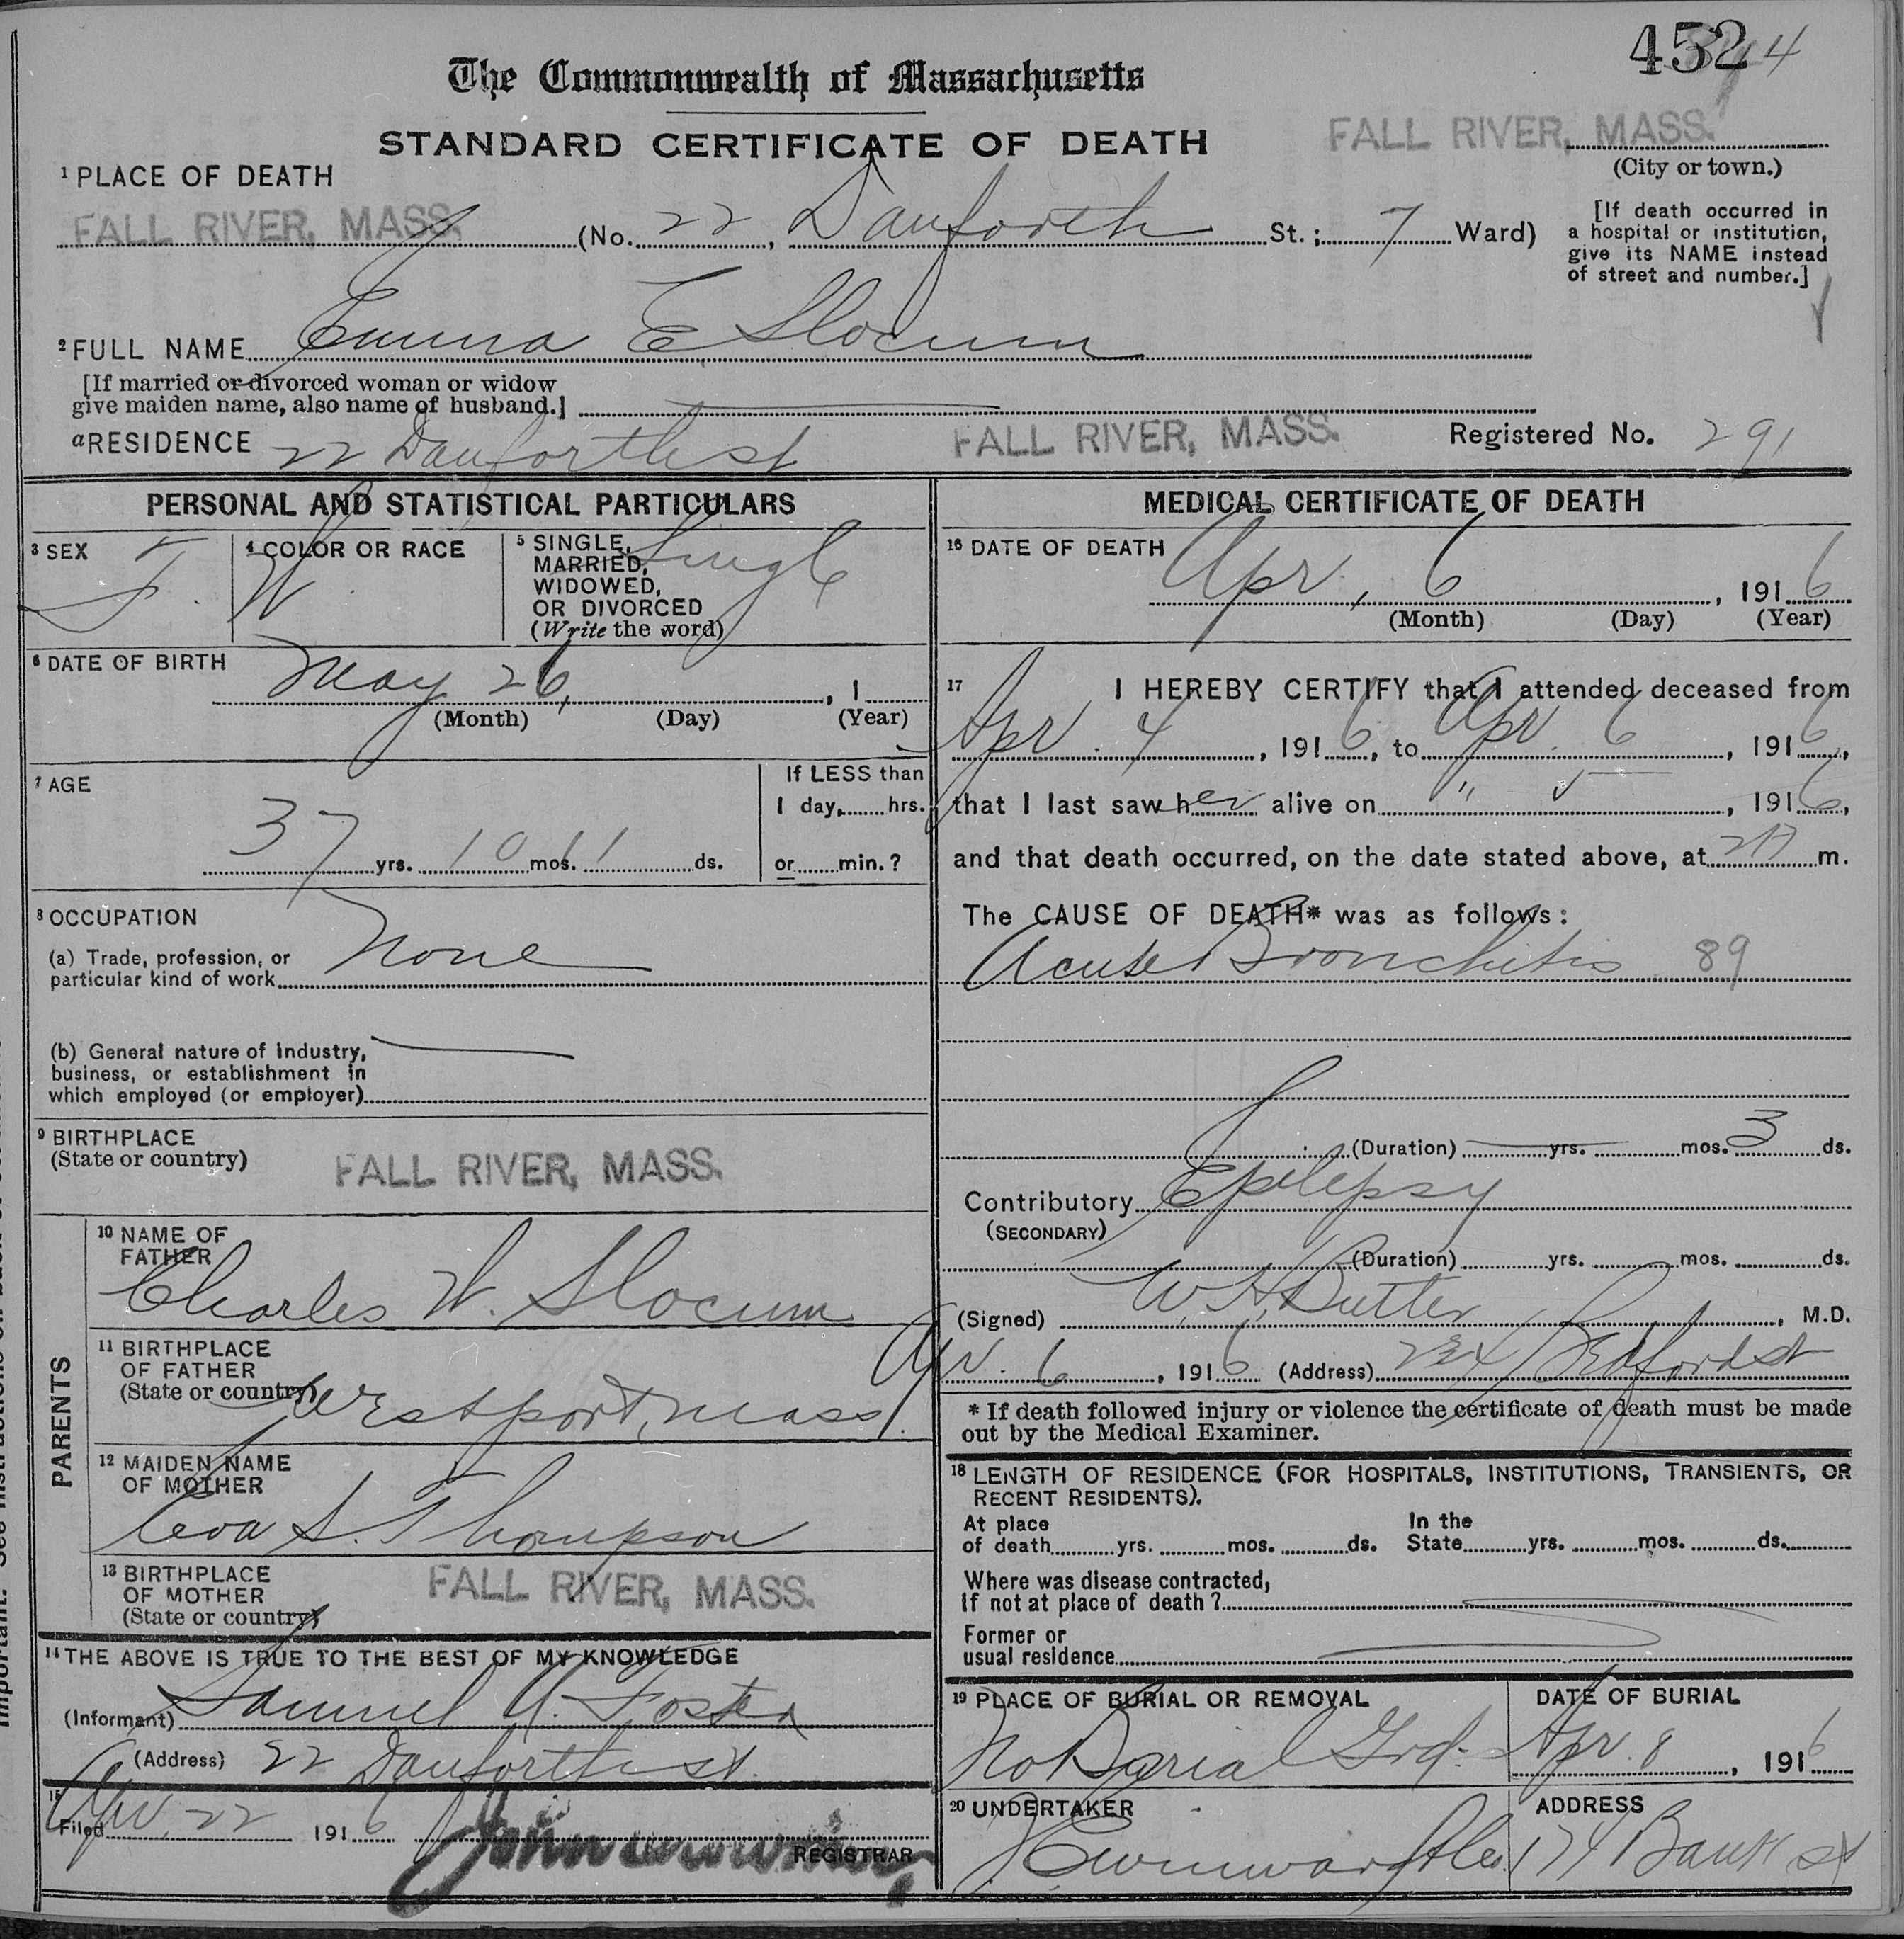 452
The Commonwealth of Massachusetts
STANDARD CERTIFICATE OF DEATH
FALL RIVER, MASS.
(City or town.)
1 PLACE OF DEATH
FALL RIVER, MASS. (No. 22, Danforth St.; 7 Ward)
[If death occurred in a hospital or institution, give its NAME instead of street and number.]
2 FULL NAME Emma E Slocum
[If married or divorced woman or widow
give maiden name, also name of husband.]
a RESIDENCE 22 Danforth st FALL RIVER, MASS. Registered No. 291
PERSONAL AND STATISTICAL PARTICULARS
3 SEX F.
4 COLOR OR RACE W
5 SINGLE, MARRIED, WIDOWED, OR DIVORCED (Write the word) Single
6 DATE OF BIRTH
May 26, , 1
(Month) (Day) (Year)
7 AGE
37 yrs. 10 mos. 11 ds.
If LESS than
1 day, hrs.
or min.?
8 OCCUPATION
(a) Trade, profession, or
particular kind of work None
(b) General nature of industry,
business, or establishment in
which employed (or employer)
9 BIRTHPLACE
(State or country) FALL RIVER, MASS.
PARENTS
10 NAME OF
FATHER
Charles W. Slocum
11 BIRTHPLACE
OF FATHER
(State or country) Westport, Mass.
12 MAIDEN NAME
OF MOTHER
S. Thompson
13 BIRTHPLACE
OF MOTHER
(State or country) FALL RIVER, MASS.
14 THE ABOVE IS TRUE TO THE BEST OF MY KNOWLEDGE
(Informant) Samuel A. Foster
(Address) 22 Danforth st.
15
Filed Apr. 22 1916
REGISTRAR
MEDICAL CERTIFICATE OF DEATH
16 DATE OF DEATH
Apr. 6, 1916
(Month) (Day) (Year)
17 I HEREBY CERTIFY that I attended deceased from
Apr. 4, 1916, to Apr. 6, 1916,
that I last saw her alive on " 5, 1916,
and that death occurred, on the date stated above, at m.
The CAUSE OF DEATH* was as follows:
Acute Bronchitis 89
(Duration) yrs. mos. 3 ds.
Contributory Epilepsy
(SECONDARY)
(Duration) yrs. mos. ds.
(Signed) W. H. Butler, M.D.
Apr. 6, 1916 (Address) Bedford st
* If death followed injury or violence the certificate of death must be made
out by the Medical Examiner.
18 LENGTH OF RESIDENCE (FOR HOSPITALS, INSTITUTIONS, TRANSIENTS, OR
RECENT RESIDENTS).
At place
of death yrs. mos. ds.
In the
State yrs. mos. ds.
Where was disease contracted,
If not at place of death?
Former or
usual residence
19 PLACE OF BURIAL OR REMOVAL
No Burial Grd.
DATE OF BURIAL
Apr. 8, 1916
20 UNDERTAKER
ADDRESS
174 Bank st